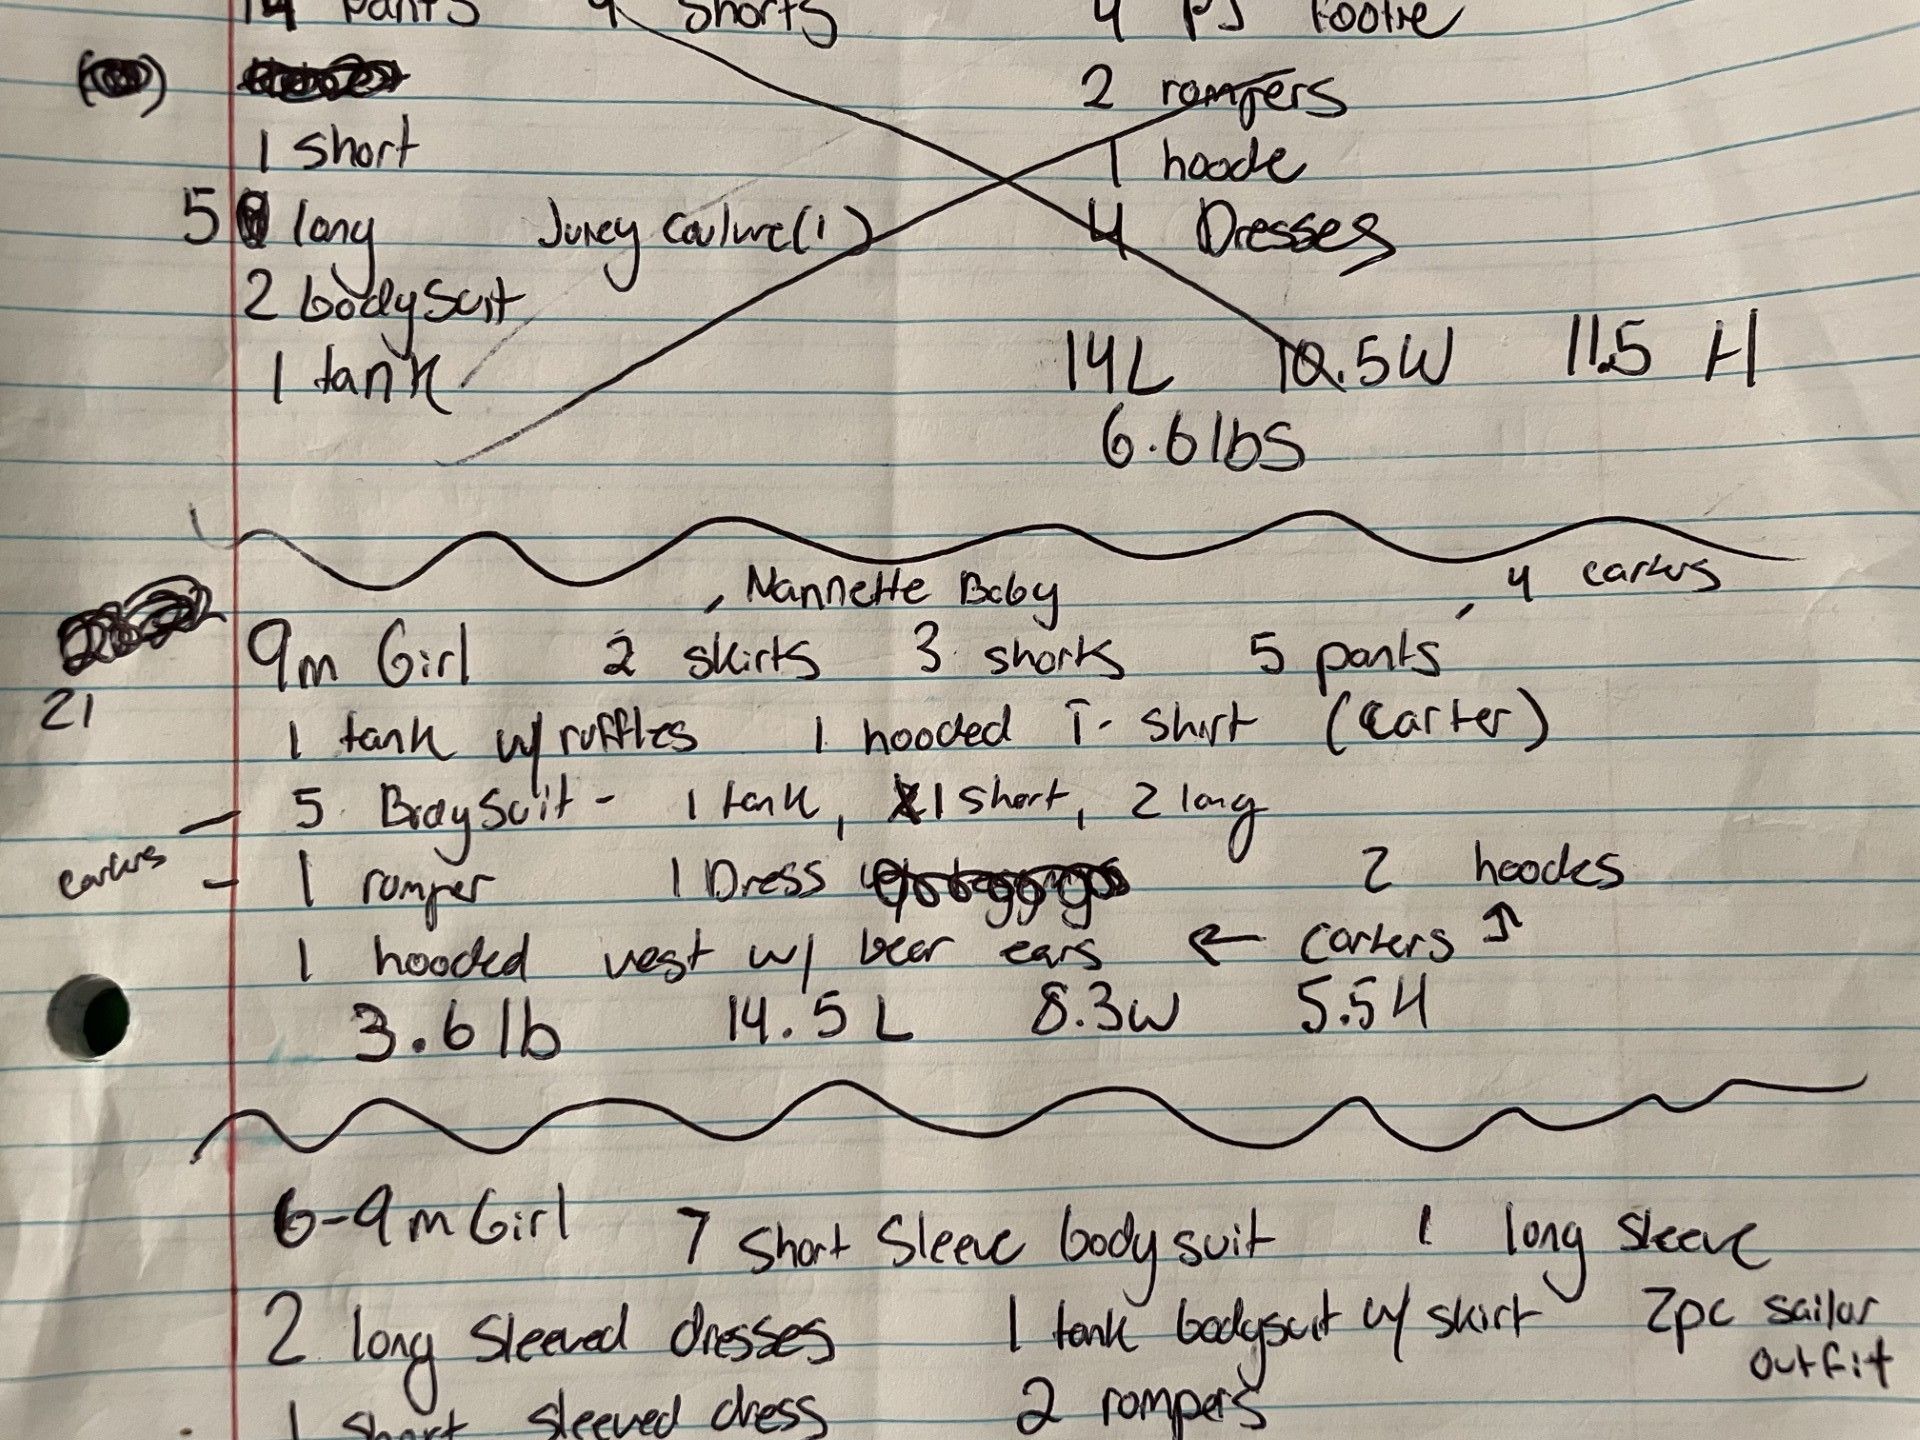 14 pants 4 shorts 4 PJ footie
2 rompers
1 short 1 hoodie
5 long Juicy Couture (1) 4 Dresses
2 bodysuit
1 tank 14L 10.5W 11.5 H
6.6lbs
Nannette Baby 4 carters
9m Girl 2 skirts 3 shorts 5 pants
21
1 tank w/ ruffles 1 hooded T-shirt (Carter)
5 Bodysuit - 1 tank, 1 short, 2 long
carters 1 romper 1 Dress 2 hoodies
1 hooded vest w/ bear ears ← Carters ↑
3.6 lb 14.5 L 8.3W 5.5H
6-9m Girl 7 Short Sleeve bodysuit 1 long sleeve
2 long sleeved dresses 1 tank bodysuit w/ skirt 2pc sailor
outfit
1 short sleeved dress 2 rompers